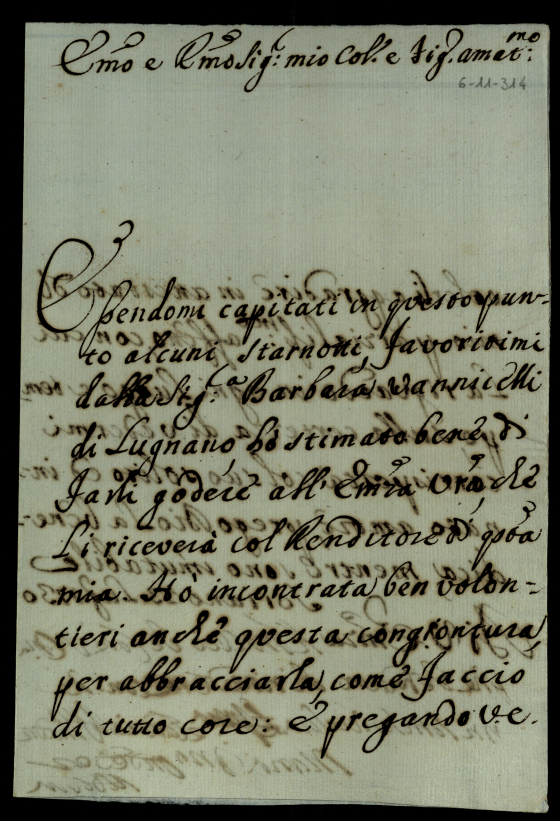 Emo e Rmo Sig: mio Col: e Sig. amatmo:
6-11-314
Essendomi capitati in questo pun-
to alcuni starnotti, favoritimi
dalla Sig:a Barbara Vannicelli
di Lugnano hò stimato bene, di
farli godere all' Emza Vra, che
li riceverà col Renditore d' qsta
mia. Hò incontrata ben volon-
tieri anche questa congiontura
per abbracciarla, come faccio
di tutto core: e pregando V.E.